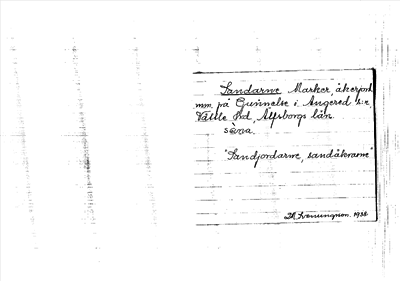 Sandarne Marker, åkerjord
mm. på Gunnelse i Angered s:n,
Vättle hd, Älfsborgs län.
"Sandjordarne, sandåkrarne"
1938